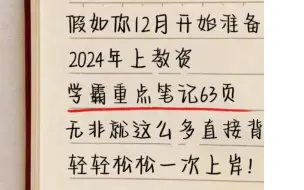 假如你12月开始准备
2024年上教资
学霸重点笔记63页
无非就这么多直接背
轻轻松松一次上岸!